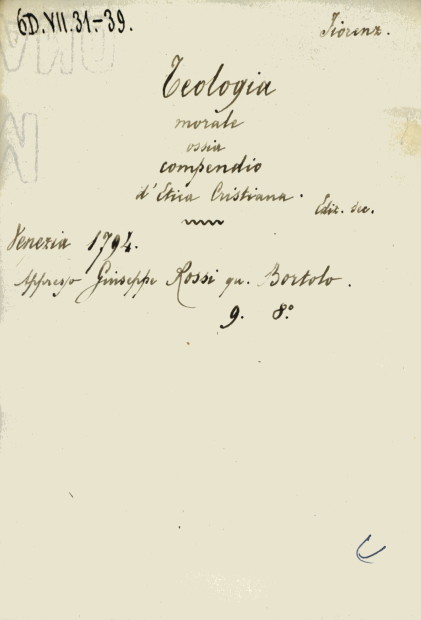 6D.VII.31-39.
Fiorenz.
Teologia
morale
ossia
compendio
d'Etica Cristiana.
Ediz. sec.
Venezia 1794.
Appresso Giuseppe Rossi qu. Bortolo.
9. 8º